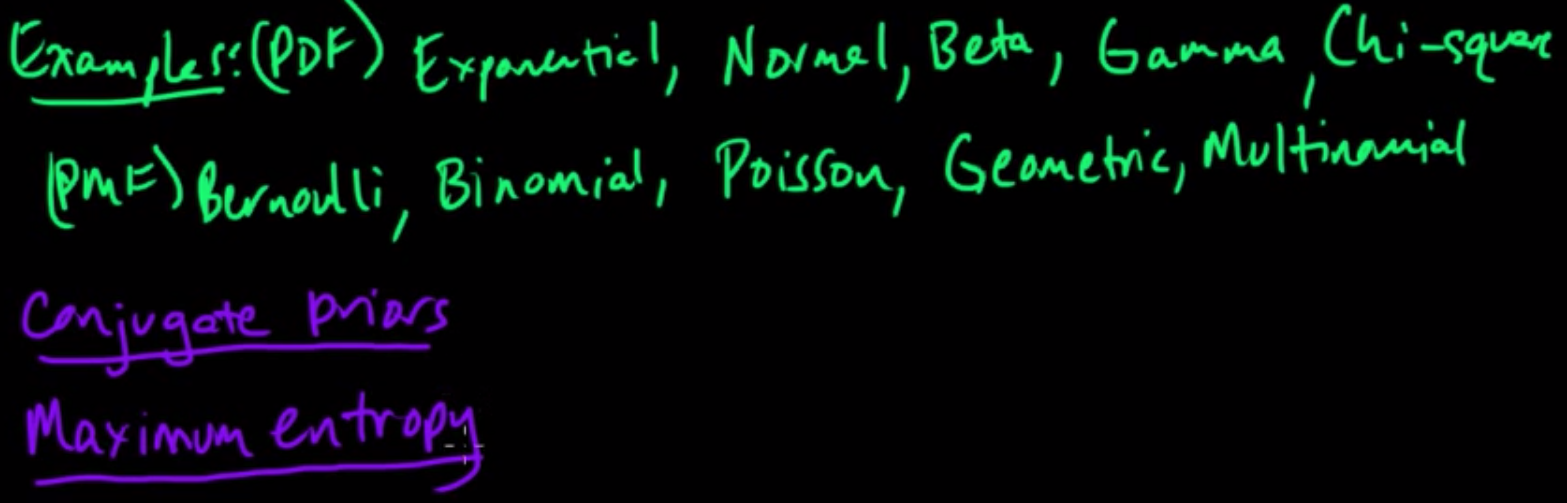 Examples: (PDF) Exponential, Normal, Beta, Gamma, Chi-square
(PMF) Bernoulli, Binomial, Poisson, Geometric, Multinomial
Conjugate priors
Maximum entropy